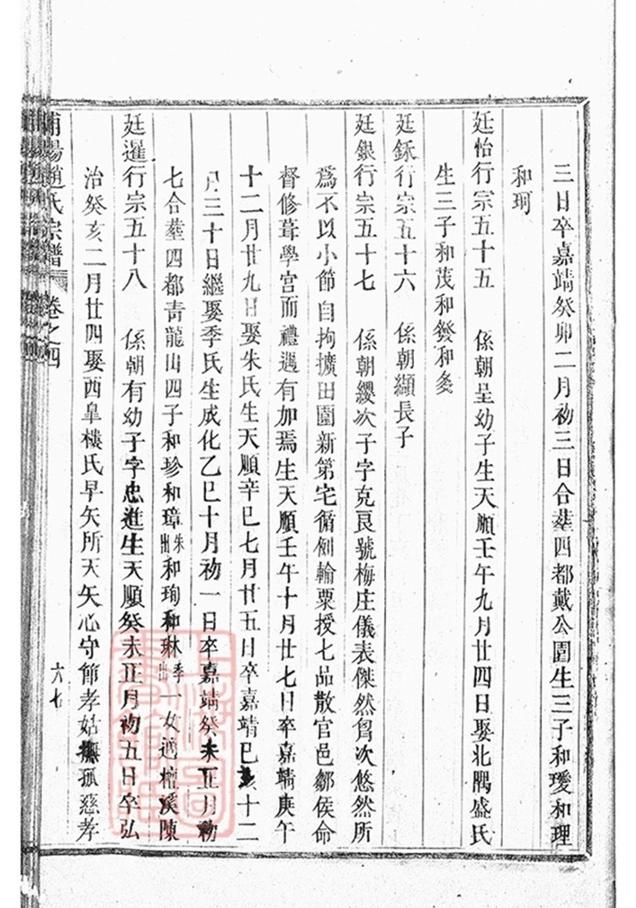 三日卒嘉靖癸卯二月初三日合塟四都戴公園生三子和璦和理
和珂
廷怡行宗五十五 係朝呈幼子生天順壬午九月廿四日娶北隅盛氏
生三子和茂和發和
廷銾行宗五十六 係朝纈長子
廷銀行宗五十七 係朝纓次子字克良號梅庄儀表傑然胷次悠然所
為不以小節自拘擴田園新第宅循例輸粟授七品散官邑鄒侯命
督修葺學宫而禮遇有加焉生天順壬午十月廿七日卒嘉靖庚午
十二月廿九日娶朱氏生天順辛巳七月廿五日卒嘉靖巳亥十二
月三十日繼娶季氏生成化乙巳十月初一日卒嘉靖癸未正月初
七合塟四都青龍山四子和珍和璋朱出和珣和琳季出一女適檀溪陳
廷暹行宗五十八 係朝有幼子字忠進生天順癸未正月初五日卒弘
治癸亥二月廿四娶西皐樓氏早矢所天矢心守節孝姑撫孤慈孝
浦陽趙氏宗譜 卷之四
六七